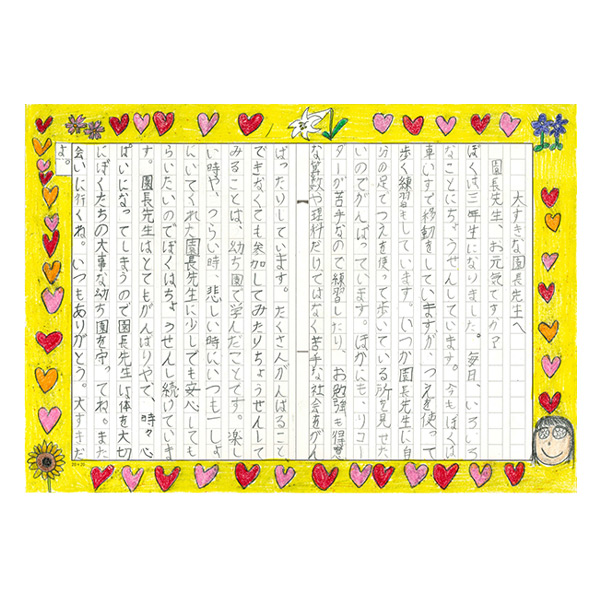 大すきな園長先生へ
園長先生、お元気ですか？
ぼくは三年生になりました。毎日、いろいろ
なことにちょうせんしています。今もぼくは、
車いすで移動をしていますが、つえを使って
歩く練習もしています。いつか園長先生に自
分の足でつえを使って歩いている所を見せた
いのでがんばっています。ほかにも、リコー
ダーが苦手なので練習したり、お勉強も得意
な算数や理科だけではなく苦手な社会をがん
ばったりしています。たくさんがんばること、
できなくても参加してみたりちょうせんして
みることは、幼ち園で学んだことです。楽し
い時や、つらい時、悲しい時にいつも一しょ
にいてくれた園長先生に少しでも安心しても
らいたいのでぼくはちょうせんし続けていま
す。園長先生はとてもがんばりやで、時々心
ぱいになってしまうので園長先生は体を大切
にぼくたちの大事な幼ち園を守ってね。また
会いに行くね。いつもありがとう。大すきだ
よ。
20×20